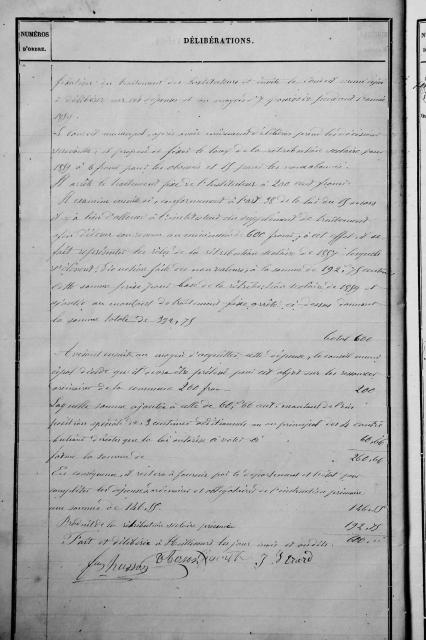 NUMÉROS
D'ORDRE.
DÉLIBÉRATIONS.
fixation du traitement des instituteurs et invite le conseil municipal
à délibérer sur ces dépenses et au moyen d'y pourvoir pendant l'année
1859.
Le conseil municipal, après avoir mûrement délibéré, prend les décisions
suivantes : et propose de fixer le taux de la rétribution scolaire pour
1859 à
Il arrête le traitement fixe de l'Instituteur à 200 cent francs.
Il examine ensuite si, conformément à l'art 38 de la loi du 15 mars
il y a lieu d'allouer à l'instituteur un supplément de traitement
afin d'élever son revenu au minimum de 600 francs, à cet effet il se
fait représenter les rôles de la rétribution scolaire de 1857 lesquels
s'élèvent, déduction faite des non valeurs, à la somme de 192,75 centimes
cette somme prise pour base de la rétribution scolaire de 1859 et
ajoutée au montant du traitement fixe arrêté ci-dessus donnent
la somme totale de 392,75
Total 600
Avisant ensuite au moyen d'acquitter cette dépense, le conseil muni-
cipal décide qu'il sera prélevé pour cet objet sur les ressources
ordinaires de la commune 200 fran
200
Laquelle somme ajoutée à celle de 60f,66 cent. montant de l'im-
position spéciale de 3 centimes additionnels au principal des 4 contri-
butions directes que la loi autorise à voter ci
60,66
forme la somme de
260,66
En conséquence, il restera à fournir par le département et l'état pour
compléter les dépenses ordinaires et obligatoires de l'instruction primaire
une somme de 146.55.
146.55
Produit de la rétribution scolaire présumée
192.75
Fait et délibéré à les jour, mois et an dits.
600
Husson
J. Gérard